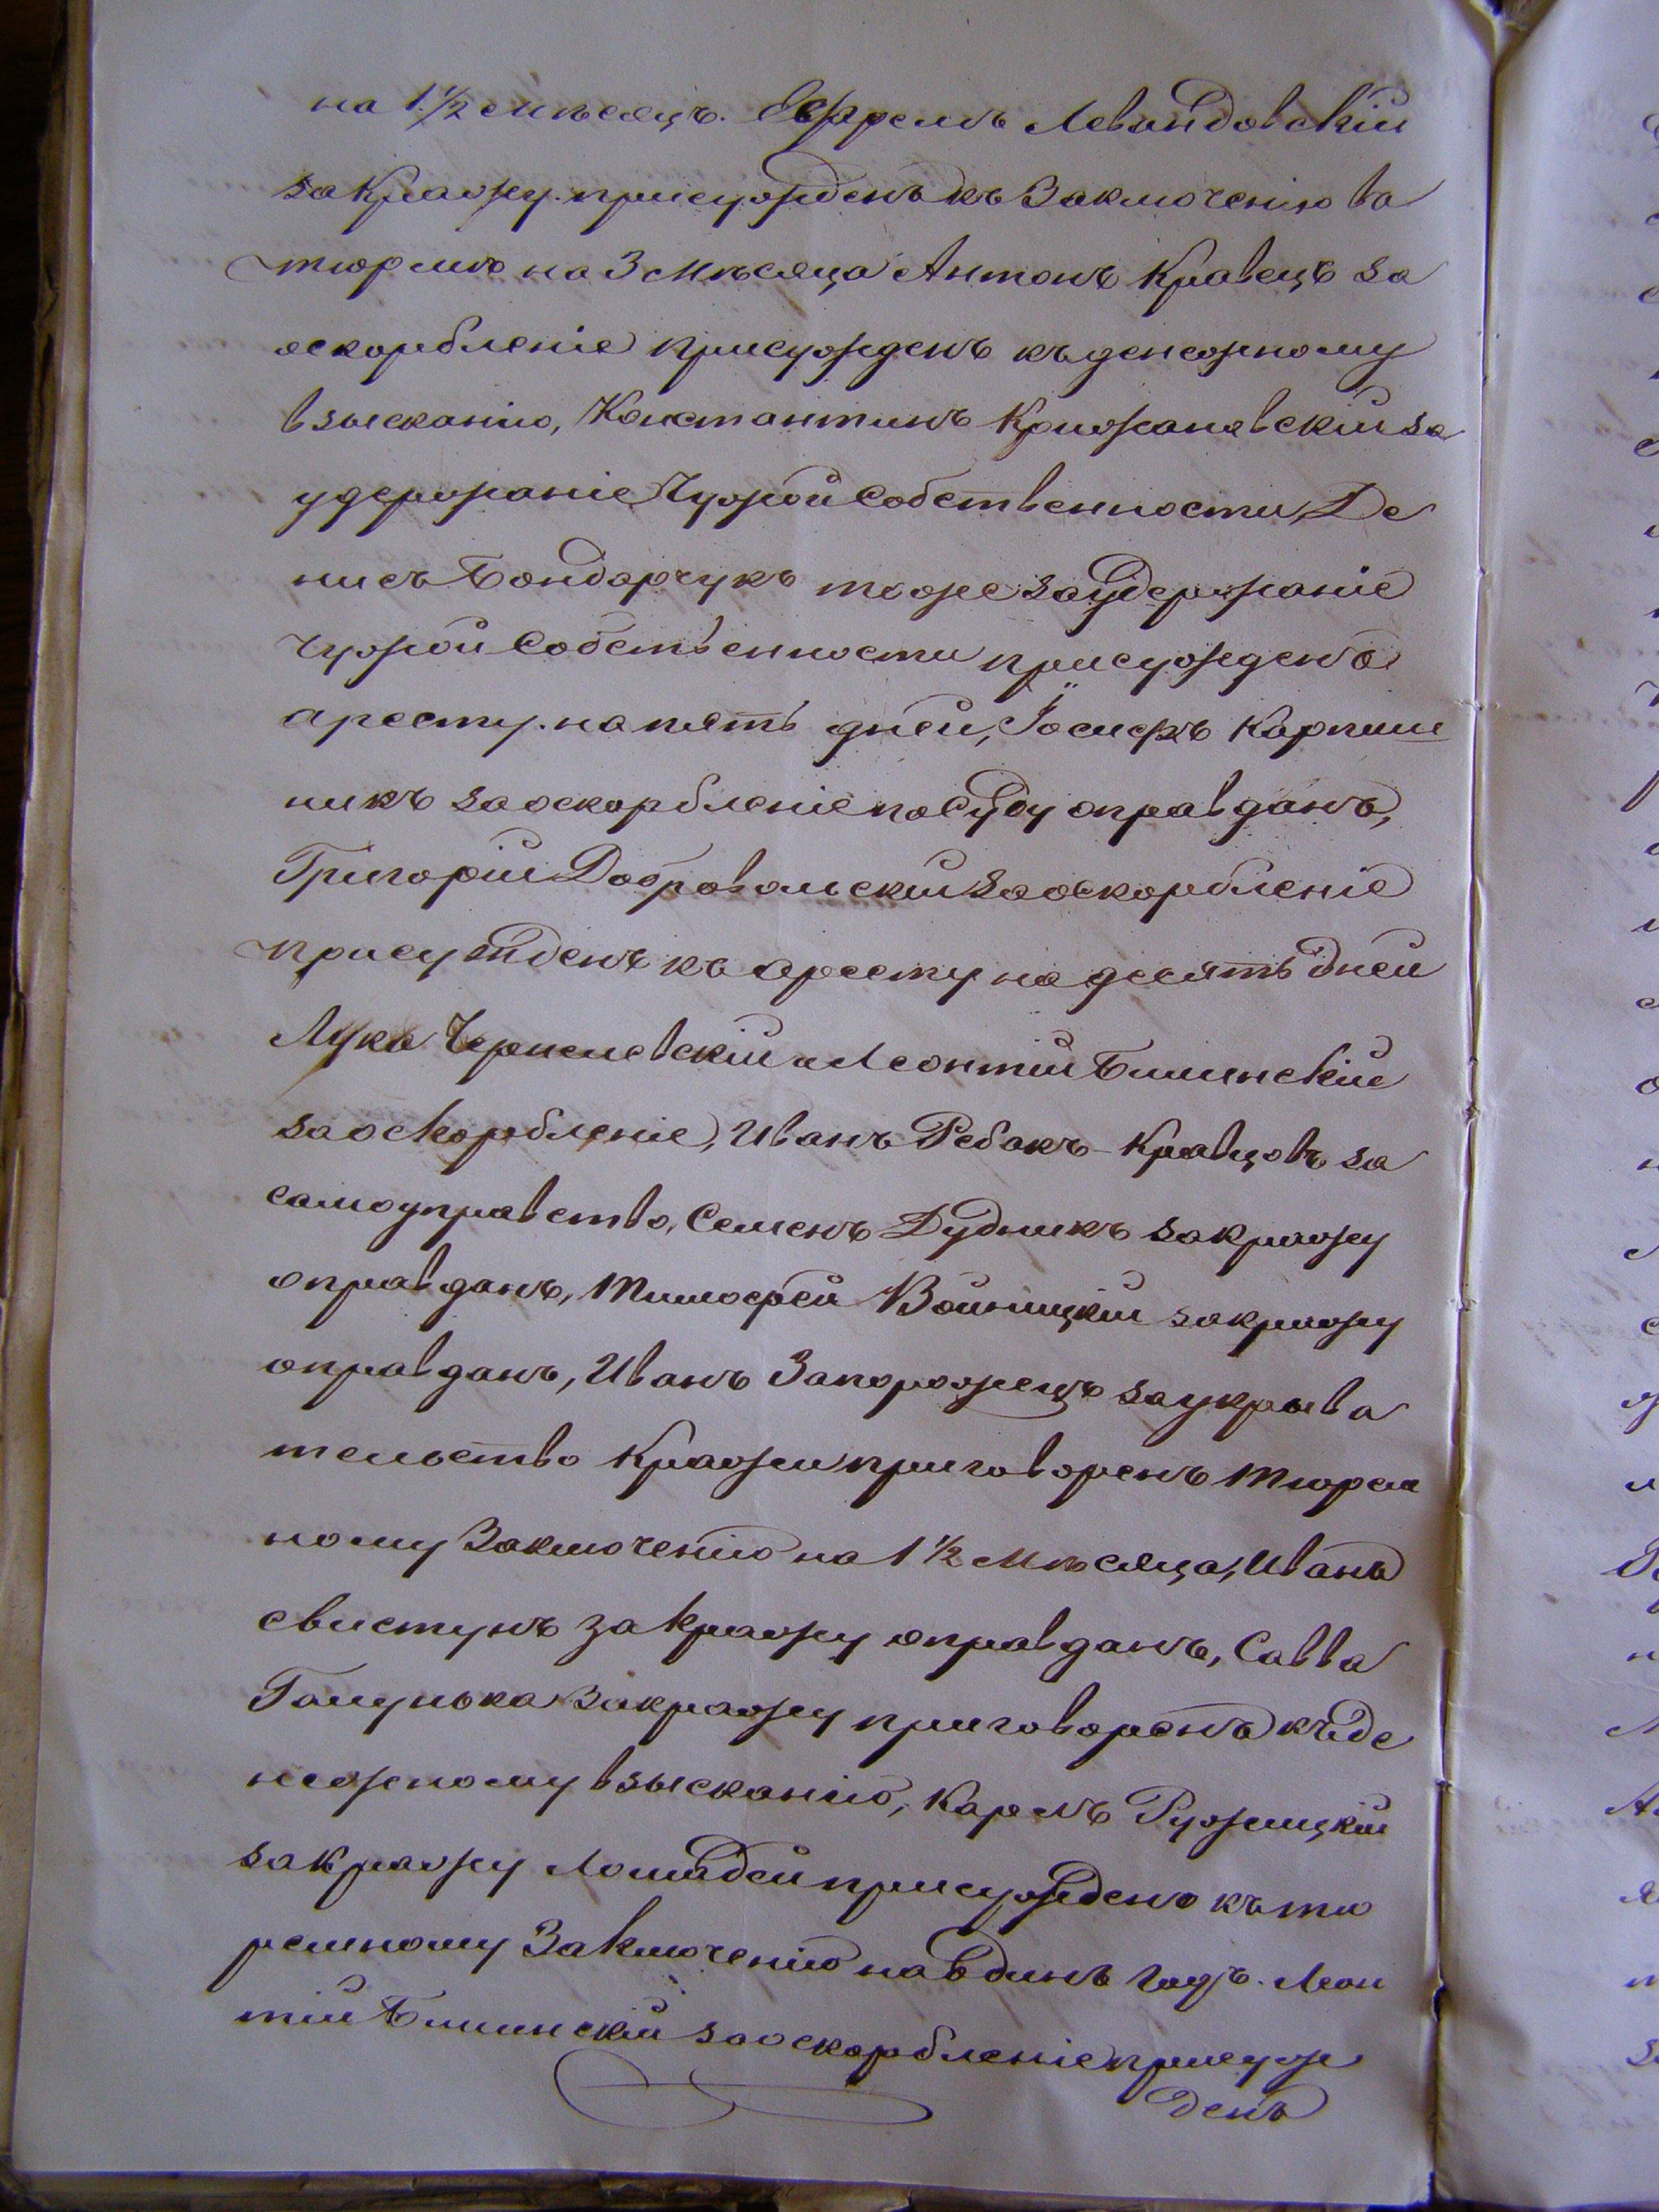 на 1 1/2 мѣсяцъ. Ефремъ Левандовскій
за кражу присужденъ къ Заключенію въ
тюрмѣ на 3 мѣсяца Антонъ Кравецъ за
оскорбленіе присужденъ къ денежному
взысканію, Констянтинъ Крижановскій за
удержаніе Чужой Собственности, Де
нисъ Бондарчукъ тоже за удержаніе
чужой Собственности присужденъ
аресту на пять дней, Іосифъ Карпиш
никъ за оскорбленіе по Суду оправданъ,
Григорій Добровольскій за оскорбленіе
присужденъ къ аресту на десять дней
Лука Черпелевскій и Леонтій Билинскій
за оскорбленіе, Иванъ Ребакъ-Кравцовъ за
самоуправство, Семенъ Дудникъ за кражу
оправданъ, Тимофей Войницкій за кражу
оправданъ, Иванъ Запорожецъ за укрыва
тельство Кражи приговоренъ тюрем
ному Заключенію на 1 1/2 мѣсяца, Иванъ
свистунъ за кражу оправданъ, Савва
Галунька за кражу приговоренъ къ де
нежному взысканію, Карлъ Ружицкій
за кражу Лошадей присужденъ къ тю
ремному Заключенію на Одинъ годъ. Леон
тій Билинскій за оскорбленіе присуж
денъ